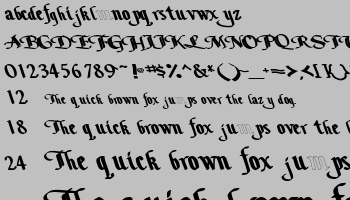 abcdefghijklmnopqrstuvwxyz
ABCDEFGHIJKLMNOPQRSTU
0123456789~!@#$%^&*()_+=>,<
12 The quick brown fox jumps over the lazy dog
18 The quick brown fox jumps over the l
24 The quick brown fox jumps
The quick brown fo